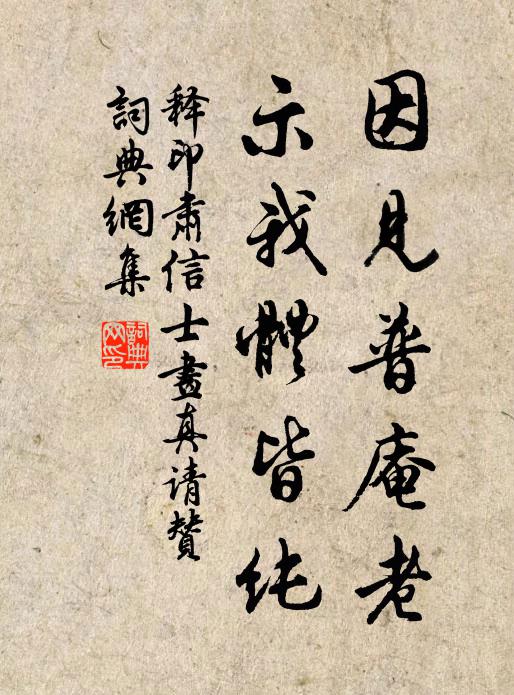 因見普庵老
示我體皆純
释印肅信士畫真请贊
詞典網集
詞典網印